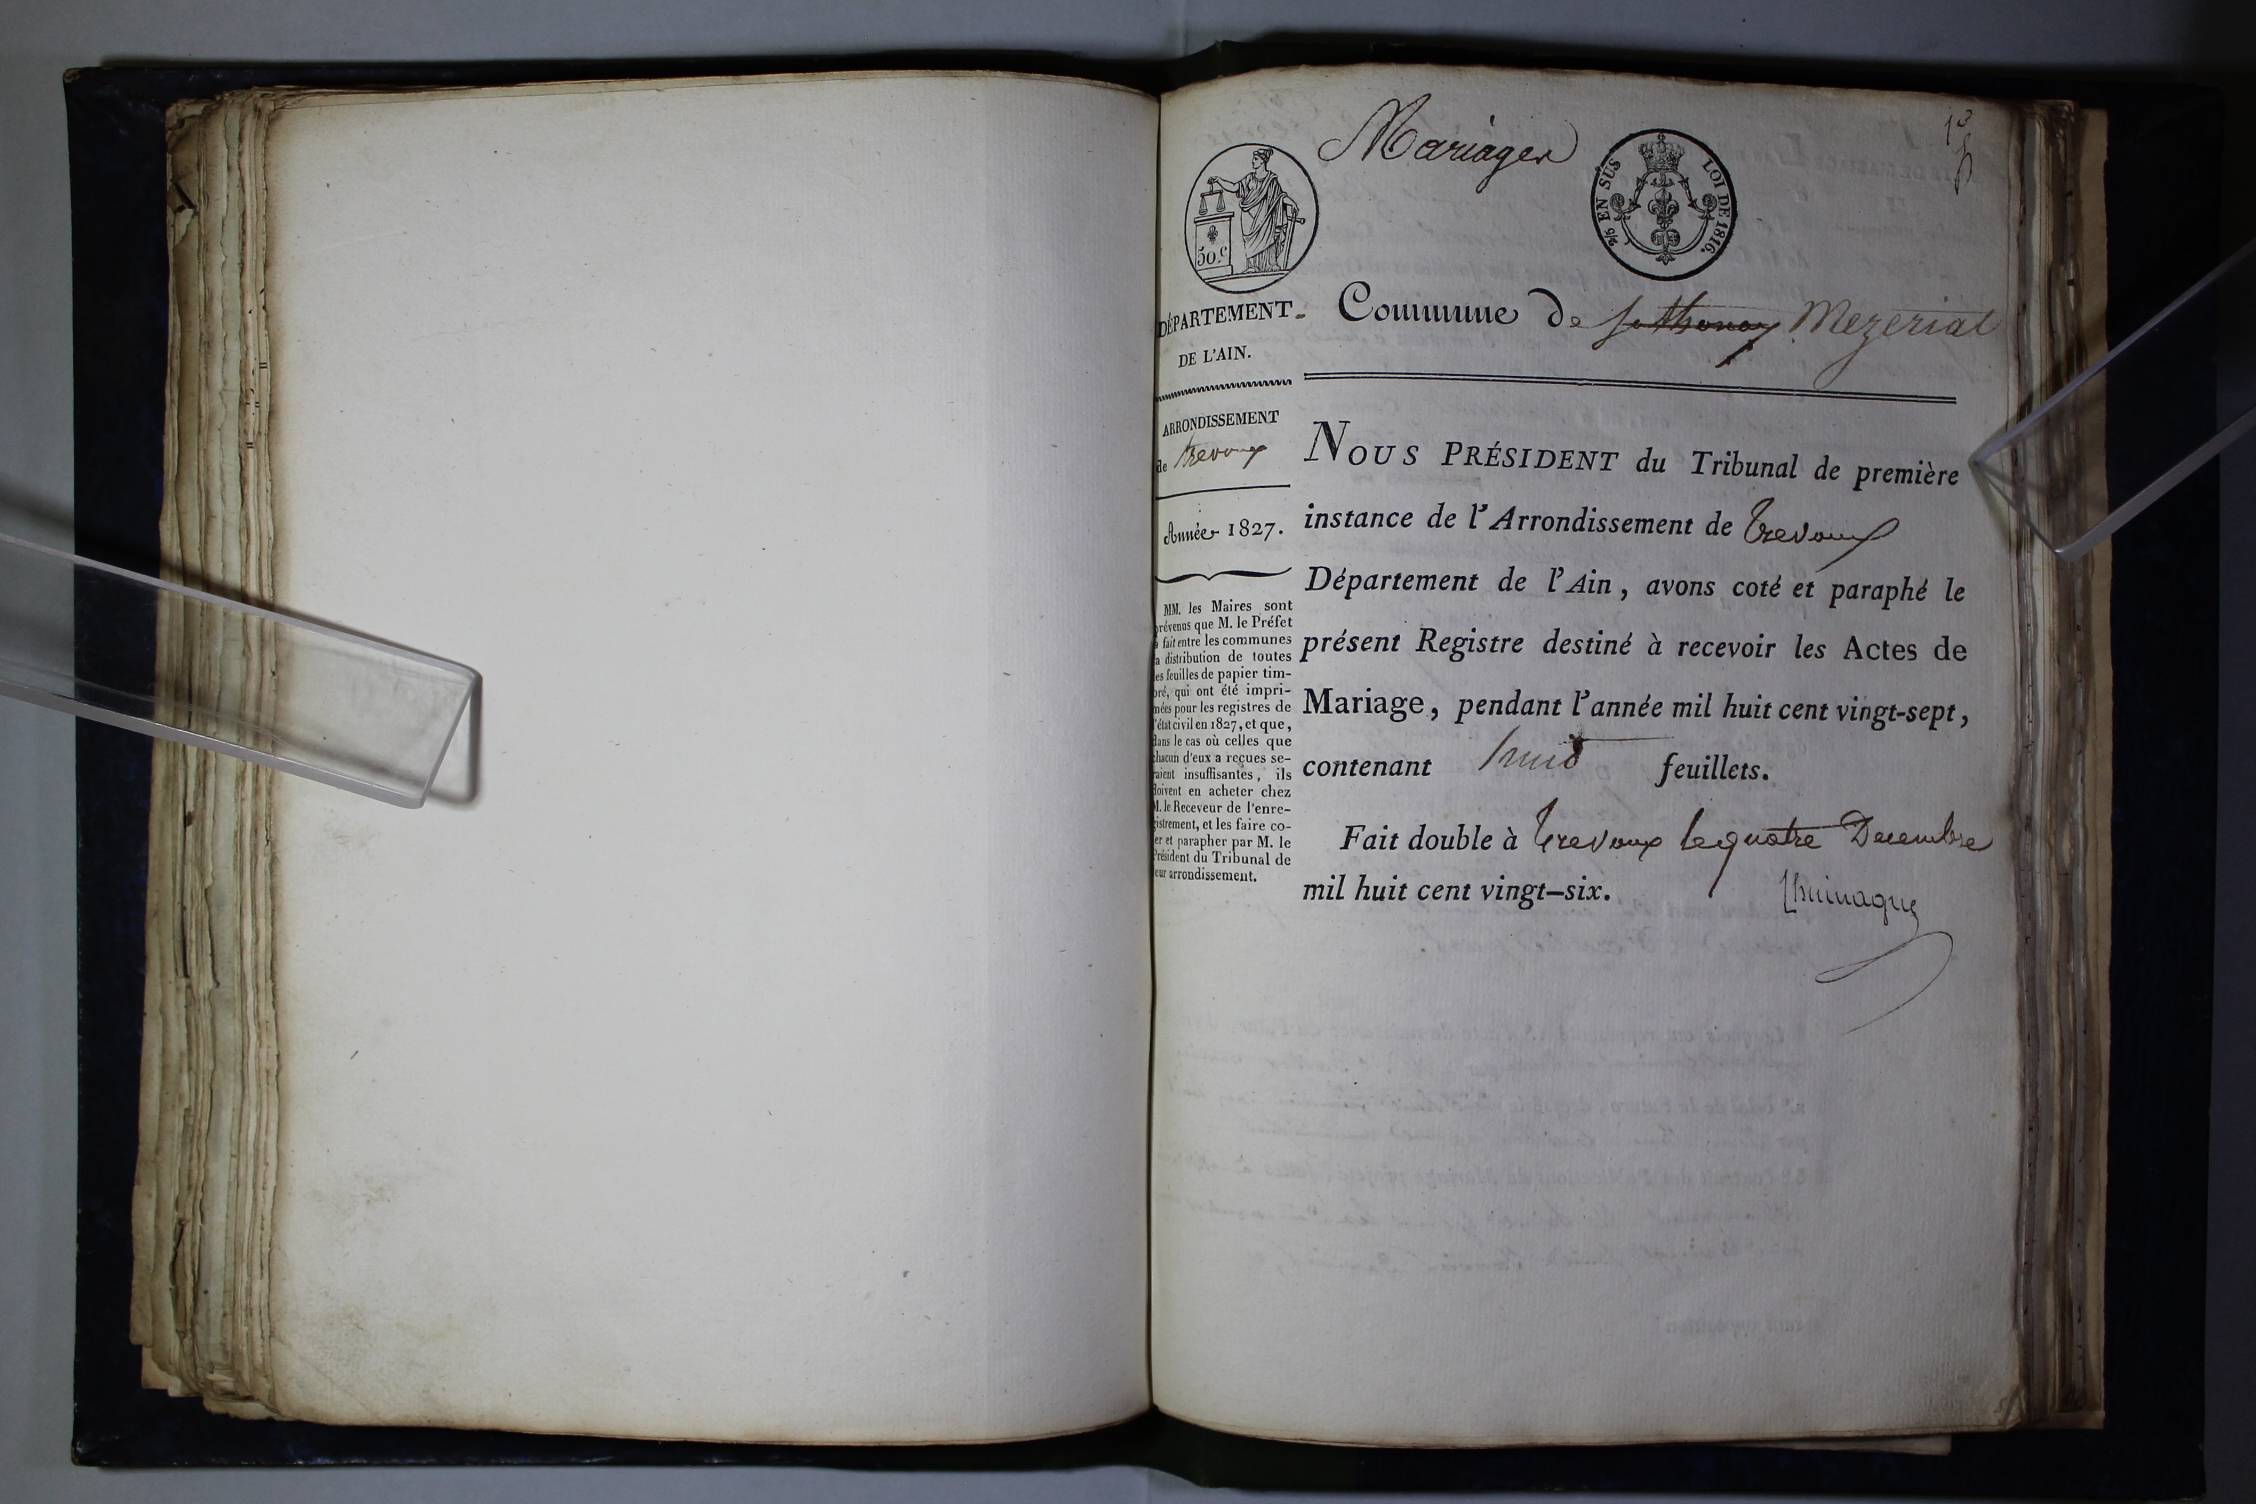 Mariages
1er
50.c
2/5 EN SUS LOI DE 1816.
DÉPARTEMENT
DE L'AIN.
Commune de Sathonay Mezeriat
ARRONDISSEMENT
de trevoux
Année 1827.
MM. les Maires sont
prévenus que M. le Préfet
a fait entre les communes
la distribution de toutes
les feuilles de papier tim-
bré, qui ont été impri-
mées pour les registres de
l'état civil en 1827, et que,
dans le cas où celles que
chacun d'eux a reçues se-
raient insuffisantes, ils
doivent en acheter chez
M. le Receveur de l'enre-
gistrement, et les faire co-
ter et parapher par M. le
Président du Tribunal de
leur arrondissement.
NOUS PRÉSIDENT du Tribunal de première
instance de l'Arrondissement de Trevoux
Département de l'Ain, avons coté et paraphé le
présent Registre destiné à recevoir les Actes de
Mariage, pendant l'année mil huit cent vingt-sept,
contenant huit feuillets.
Fait double à Trevoux le quatre Decembre
mil huit cent vingt-six.